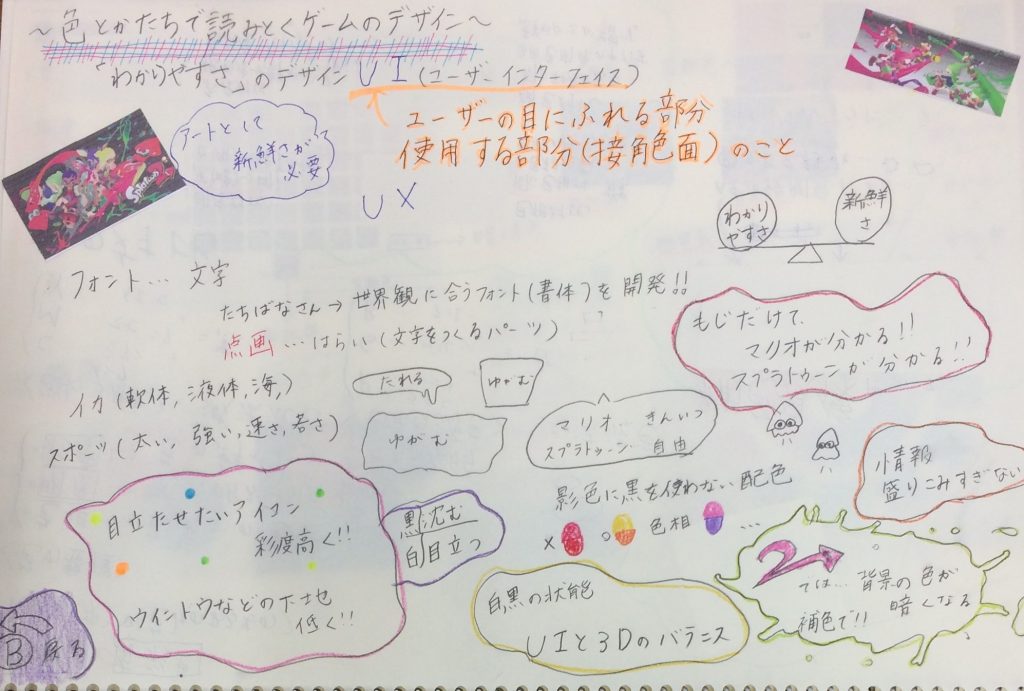 ～色とかたちで読みとくゲームのデザイン～
「わかりやすさ」のデザイン UI (ユーザーインターフェイス)
ユーザーの目にふれる部分
使用する部分(接角色面)のこと
アートとして
新鮮さが
必要
Splatoon
UX
わかり
やすさ
新鮮
さ
フォント… 文字
たちばなさん→ 世界観に合うフォント(書体)を開発!!
点画…はらい(文字をつくるパーツ)
もじだけで、
マリオが分かる!!
スプラトゥーンが分かる!!
イカ(軟体,液体,海,)
たれる
ゆがむ
スポーツ(太い,強い,速さ,若さ)
ゆがむ
マリオ… きんいつ
スプラトゥーン… 自由
情報
盛りこみすぎない
影色に黒を使わない配色
× ○ 色相 …
目立たせたいアイコン
彩度高く!!
ウインドウなどの下地
低く!!
黒沈む
白目立つ
白黒の状態
UIと3Dのバランス
2
では… 背景の色が
暗くなる
補色で!!
B 戻る